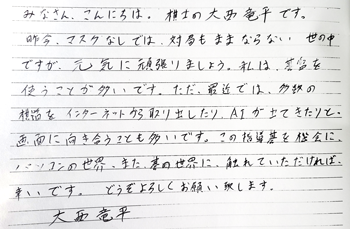 みなさん、こんにちは。棋士の大西竜平です。
昨今、マスクなしでは、対局もままならない世の中
ですが、元気に頑張りましょう。私は、芸を
使うことが多いです。ただ、最近では、多数の
棋譜をインターネットから取り出したり、AIが出てきたりと、
画面に向き合うことも多いです。この指導碁を機会に、
パソコンの世界、また、碁の世界に、触れていただければ、
幸いです。どうぞよろしくお願い致します。
大西竜平